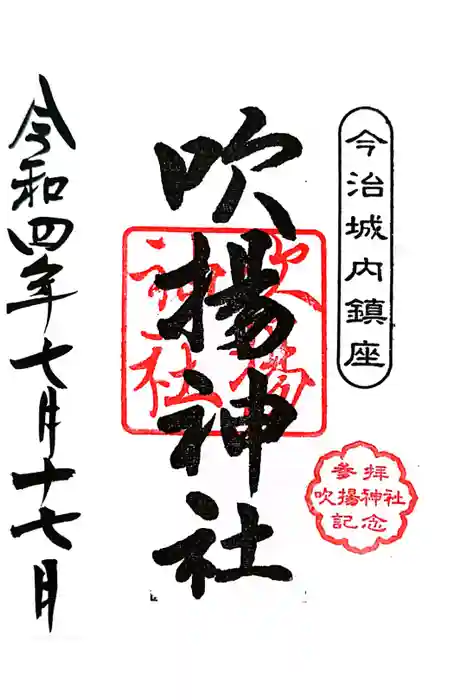 今治城内鎮座
參拝
吹揚神社
記念
吹揚神社
吹揚
神社
令和四年七月十七日